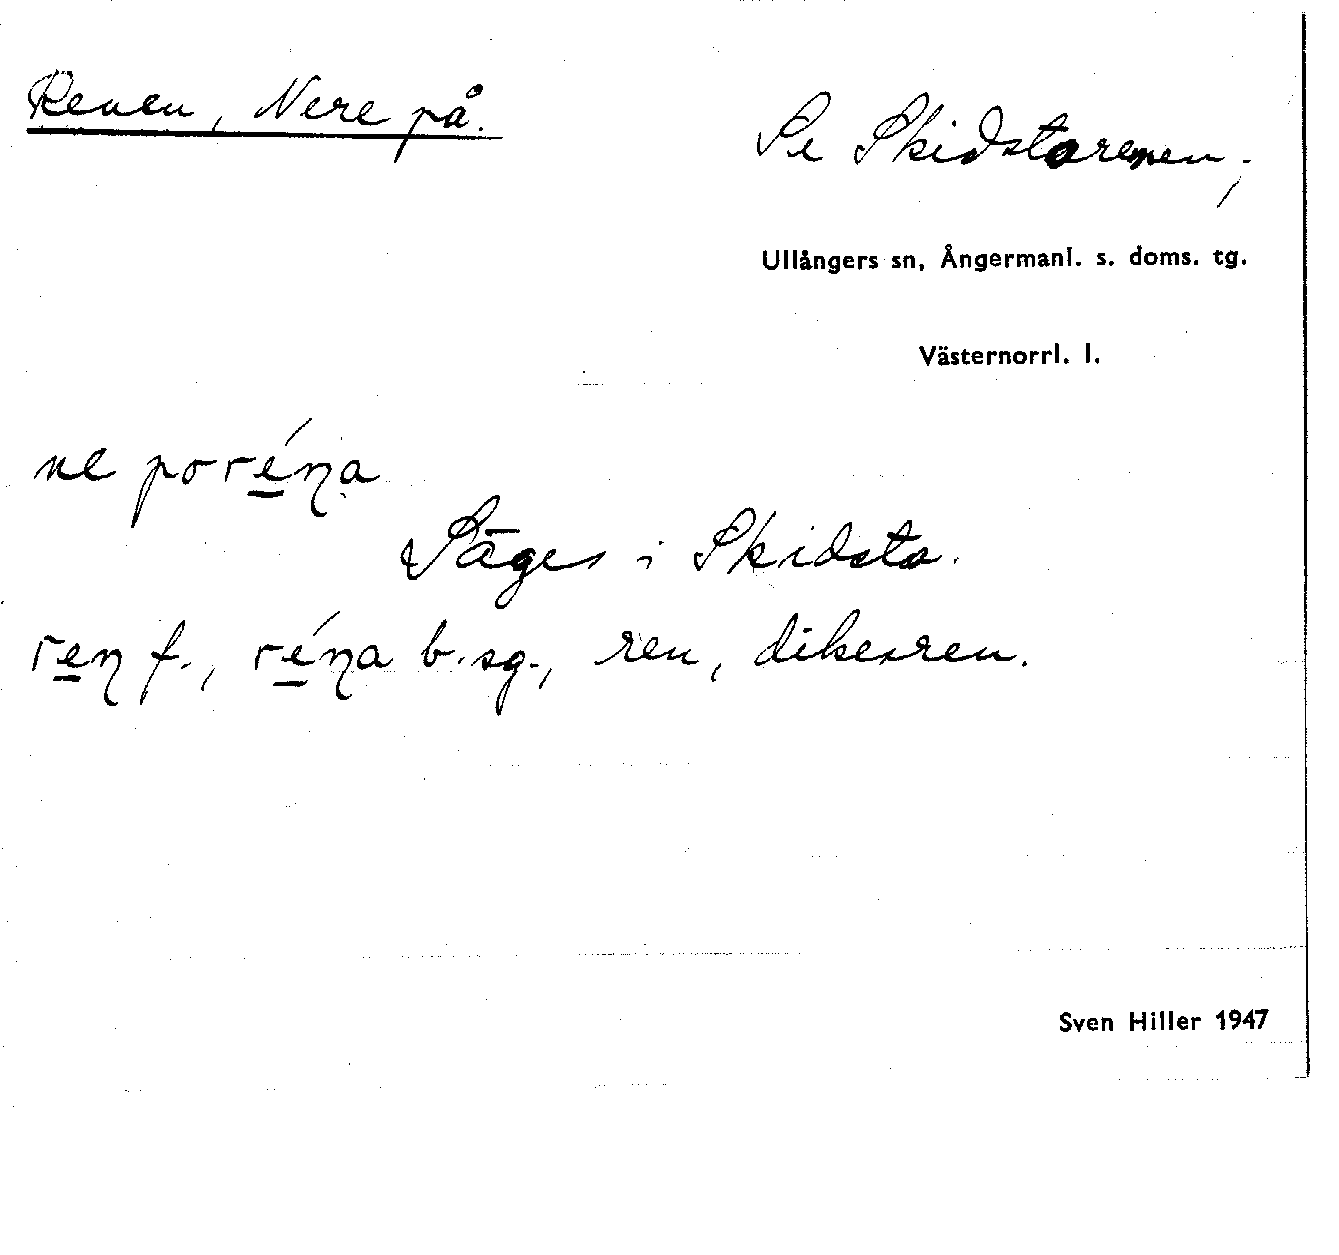 Renen, Nere på.
Se Skidstarenen,
Ullångers sn, Ångermanl. s. doms. tg.
Västernorrl. l.
ne po réŋa
Säges i Skidsta.
reŋ f., réŋa b. sg., ren, dikesren.
Sven Hiller 1947